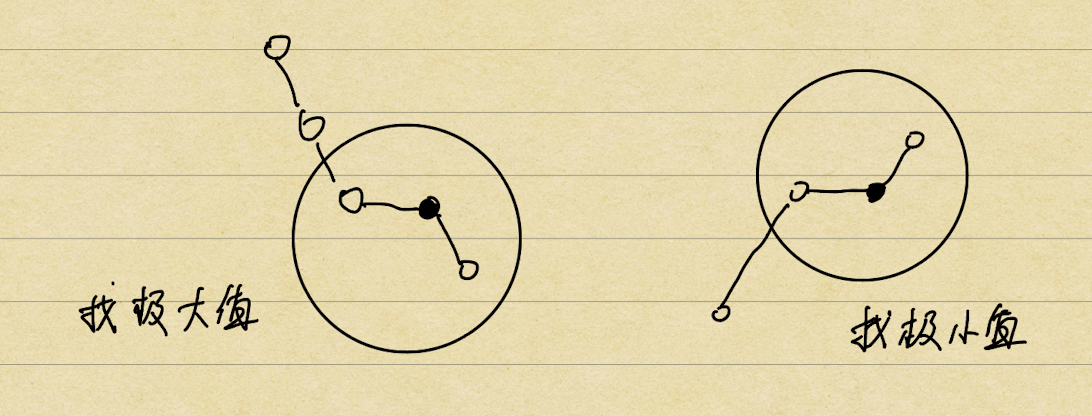 找极大值
找极小值